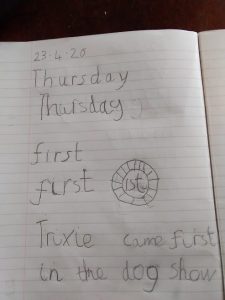 23.4.20
Thursday
Thursday
first
first 1st
Trixie came first
in the dog show